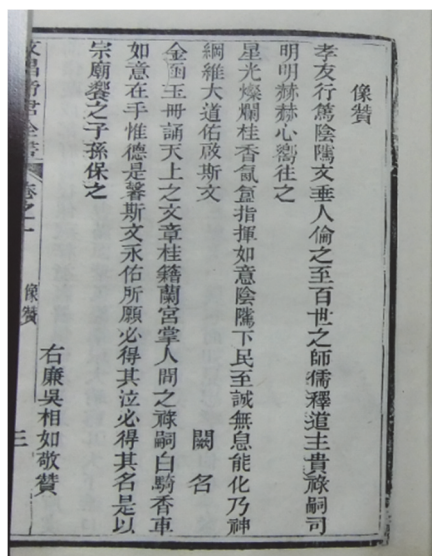 像贊
孝友行篤陰隲文垂人倫之至百世之師儒釋道主貴祿嗣司
明明赫赫心嚮往之
星光燦爛桂香氤氳指揮如意陰隲下民至誠無息能化乃神
綱維大道佑啟斯文
闕名
金函玉冊誦天上之文章桂籍蘭宮掌人間之祿嗣白騎香車
如意在手惟德是馨斯文永佑所願必得其泣必得其名是以
宗廟饗之子孫保之
右廉吳相如敬贊
文昌帝君全書
卷之一
像贊
三